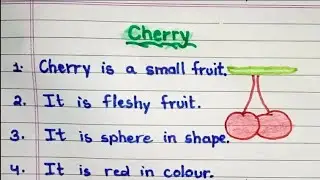 Cherry
1. Cherry is a small fruit.
2. It is fleshy fruit.
3. It is sphere in shape.
4. It is red in colour.